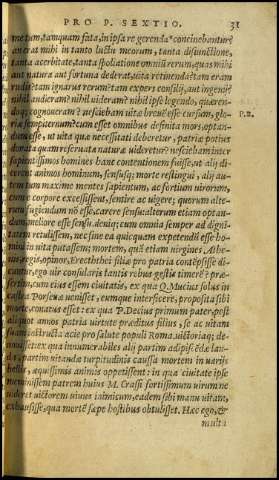 PRO P. SEXTIO. 31
metum, tamquam fata, in ipsa re gerenda concinebantur?
an erat mihi in tanto luctu meorum, tanta disiunctione,
tanta acerbitate, tanta spoliatione omniũ rerum, quas mihi
aut natura aut fortuna dederat, uita retinenda? tam eram
rudis? tam ignarus rerum? tam expers consilij, aut ingenij?
nihil audieram? nihil uideram? nihil ipse legendo, quæren-
doq; cognoueram? nesciebam uitæ breuẽ esse cursum, glo-
riæ sempiternum? cum esset omnibus definita mors, optan-
dum esse, ut uita quæ necessitati deberetur, patriæ potius
donata quam reseruata naturæ uideretur? nesciebam inter
sapientissimos homines hanc contentionem fuisse, ut alij di-
cerent animos hominum, sensusq; morte restingui, alij au-
tem tum maxime mentes sapientum, ac fortium uirorum,
cum e corpore excessissent, sentire ac uigere; quorum alte-
rum fugiendum nõ esse, carere sensu: alterum etiam optan-
dum, meliore esse sensu. deniq; cum omnia semper ad digni-
tatem retulissem, nec sine ea quicquam expetendũ esse ho-
mini in uita putassem; mortem, quã etiam uirgines Athe-
nis, regis, opinor, Erechthei filiæ pro patria contẽpsisse di-
cuntur, ego uir consularis tantis rebus gestis timerẽ? præ-
sertim, cum eius essem ciuitatis, ex qua Q. Mucius solus in
castra Porsenæ uenisset, eumque interficere, proposita sibi
morte, conatus esset: ex qua P. Decius primum pater, post
aliquot annos patria uirtute præditus filius, se ac uitam
suam instructa acie pro salute populi Roma. uictoriaq; de-
uouisset: ex qua innumerabiles alij partim adipiscẽdæ lau-
dis, partim uitandæ turpitudinis caussa mortem in uarijs
bellis, æquissimis animis oppetissent: in qua ciuitate ipse
meminissem patrem huius M. Crassi fortissimum uirum, ne
uideret uictorem uiuus inimicum, eadem sibi manu uitam
exhausisse, qua mortẽ sæpe hostibus obtulisset. Hæc ego, &
mult i